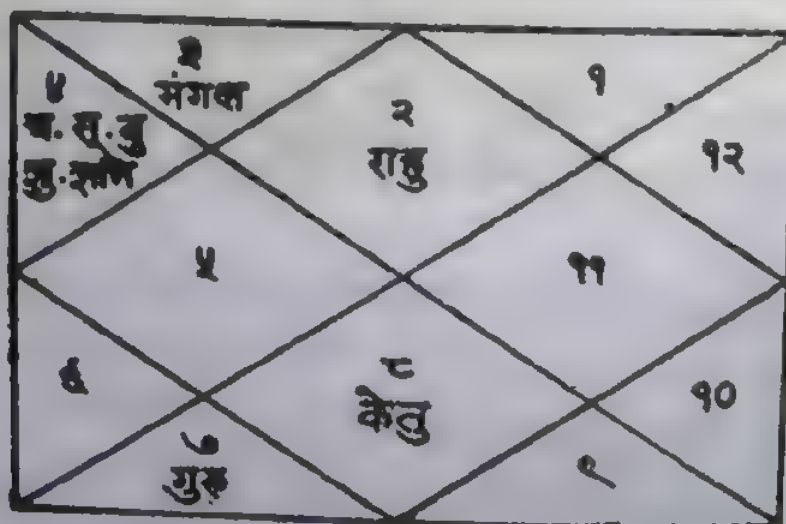 ३
मंगल
४
च. सू. बु
शु. शनि
२
राहु
१
१२
५
११
६
८
केतु
१०
७
गुरु
९